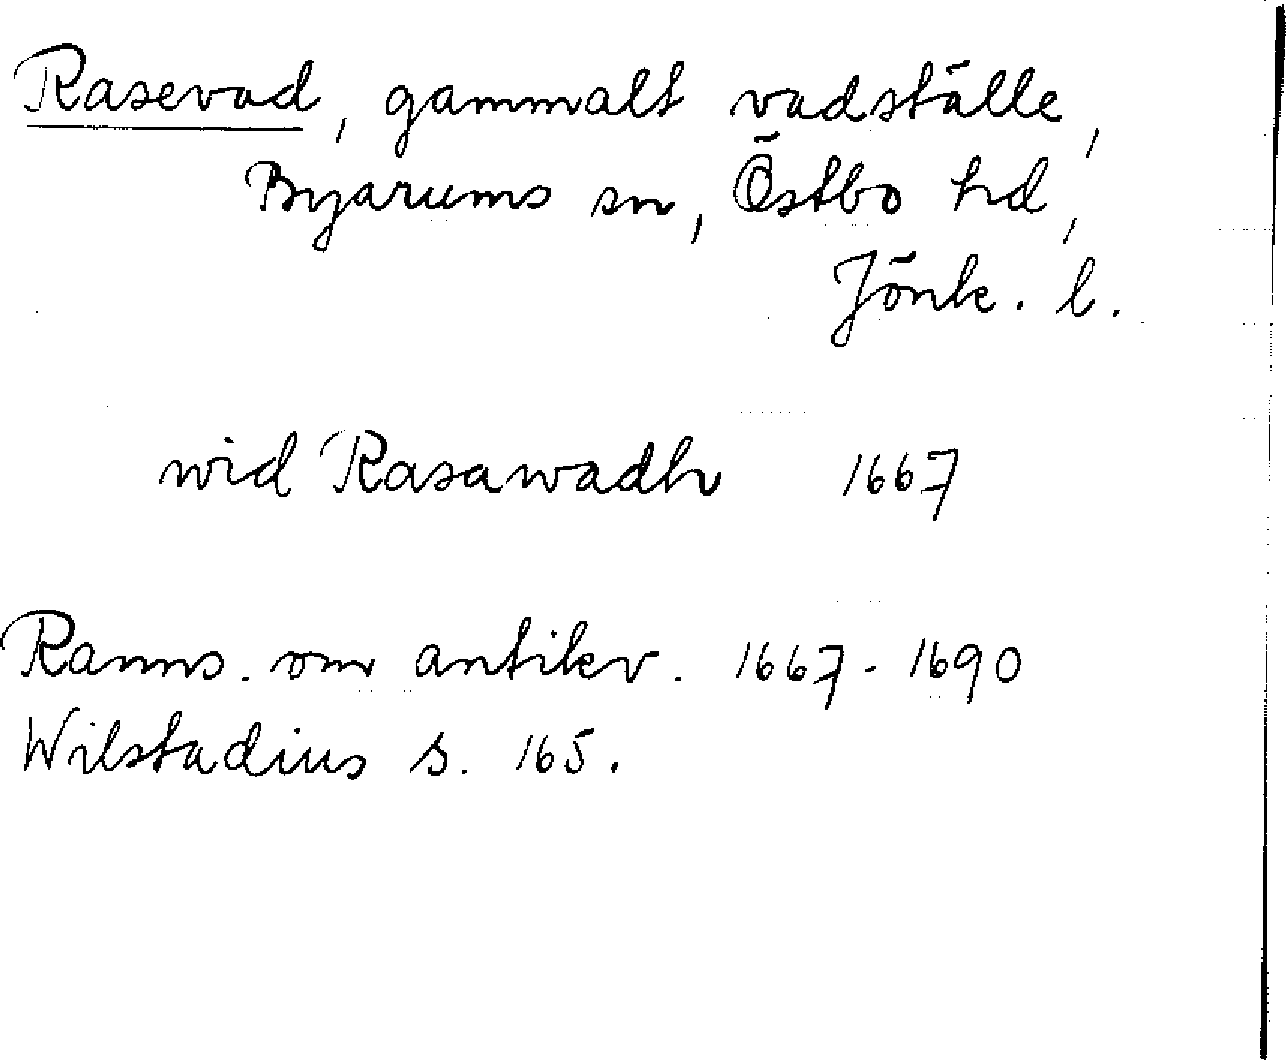 Rasevad, gammalt vadställe,
Byarums sn, Östbo hd,
Jönk. l.
wid Rasawadh 1667
Ranns. om antikv. 1667-1690
Wilstadius s. 165.